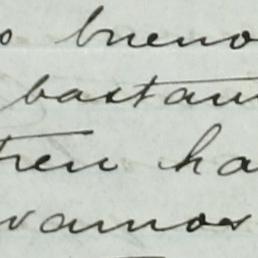 o bueno
bastan
tren ha
vamos